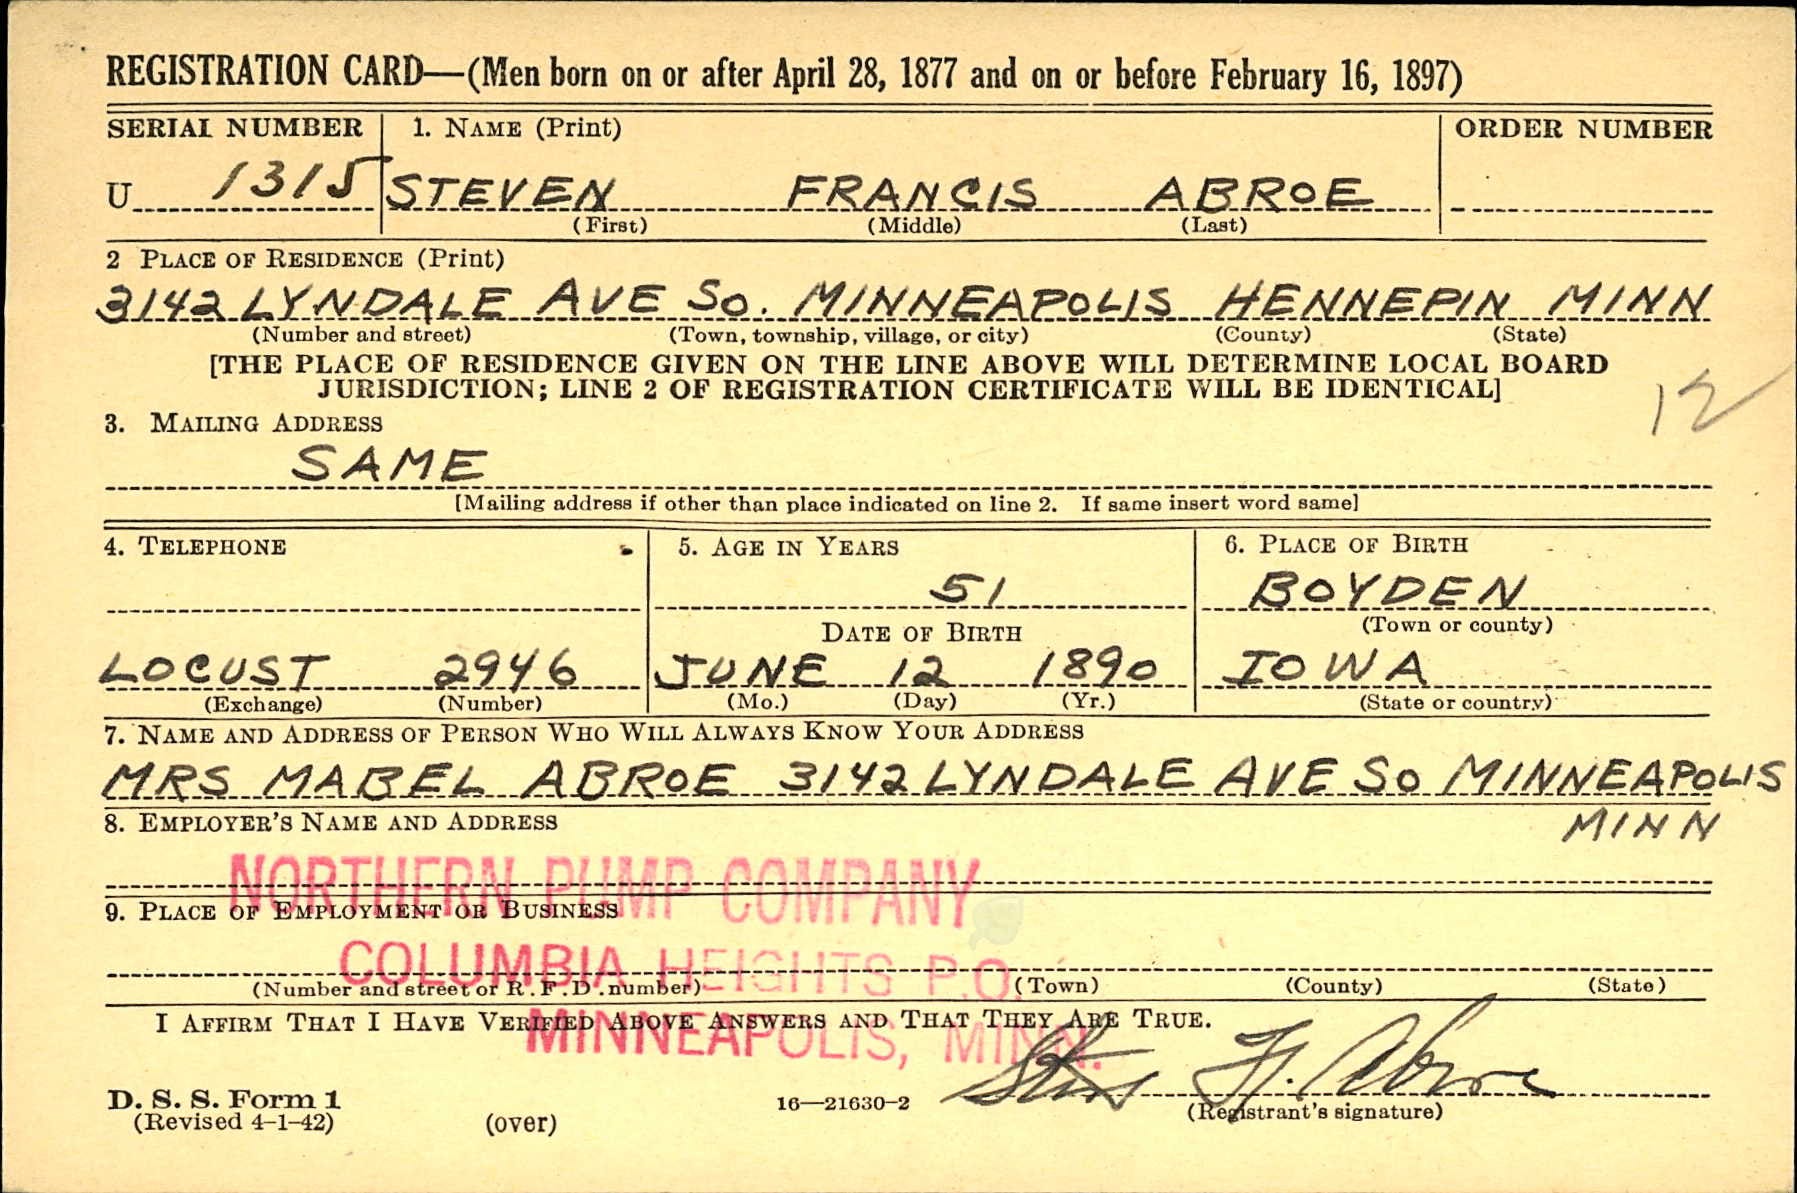 REGISTRATION CARD—(Men born on or after April 28, 1877 and on or before February 16, 1897)
SERIAL NUMBER 1. NAME (Print) ORDER NUMBER
U 1315 STEVEN FRANCIS ABROE
(First) (Middle) (Last)
2 PLACE OF RESIDENCE (Print)
3142 LYNDALE AVE SO. MINNEAPOLIS HENNEPIN MINN
(Number and street) (Town, township, village, or city) (County) (State)
[THE PLACE OF RESIDENCE GIVEN ON THE LINE ABOVE WILL DETERMINE LOCAL BOARD
JURISDICTION; LINE 2 OF REGISTRATION CERTIFICATE WILL BE IDENTICAL]
12
3. MAILING ADDRESS
SAME
[Mailing address if other than place indicated on line 2. If same insert word same]
4. TELEPHONE 5. AGE IN YEARS 6. PLACE OF BIRTH
51 BOYDEN
DATE OF BIRTH (Town or county)
LOCUST 2946 JUNE 12 1890 IOWA
(Exchange) (Number) (Mo.) (Day) (Yr.) (State or country)
7. NAME AND ADDRESS OF PERSON WHO WILL ALWAYS KNOW YOUR ADDRESS
MRS MABEL ABROE 3142 LYNDALE AVE SO MINNEAPOLIS
8. EMPLOYER'S NAME AND ADDRESS MINN
NORTHERN PUMP COMPANY
9. PLACE OF EMPLOYMENT OR BUSINESS
COLUMBIA HEIGHTS P.O.
(Number and street or R.F.D. number) (Town) (County) (State)
I AFFIRM THAT I HAVE VERIFIED ABOVE ANSWERS AND THAT THEY ARE TRUE.
MINNEAPOLIS, MINN.
Steven F. Abroe
D. S. S. Form 1 16—21630-2 (Registrant's signature)
(Revised 4-1-42) (over)